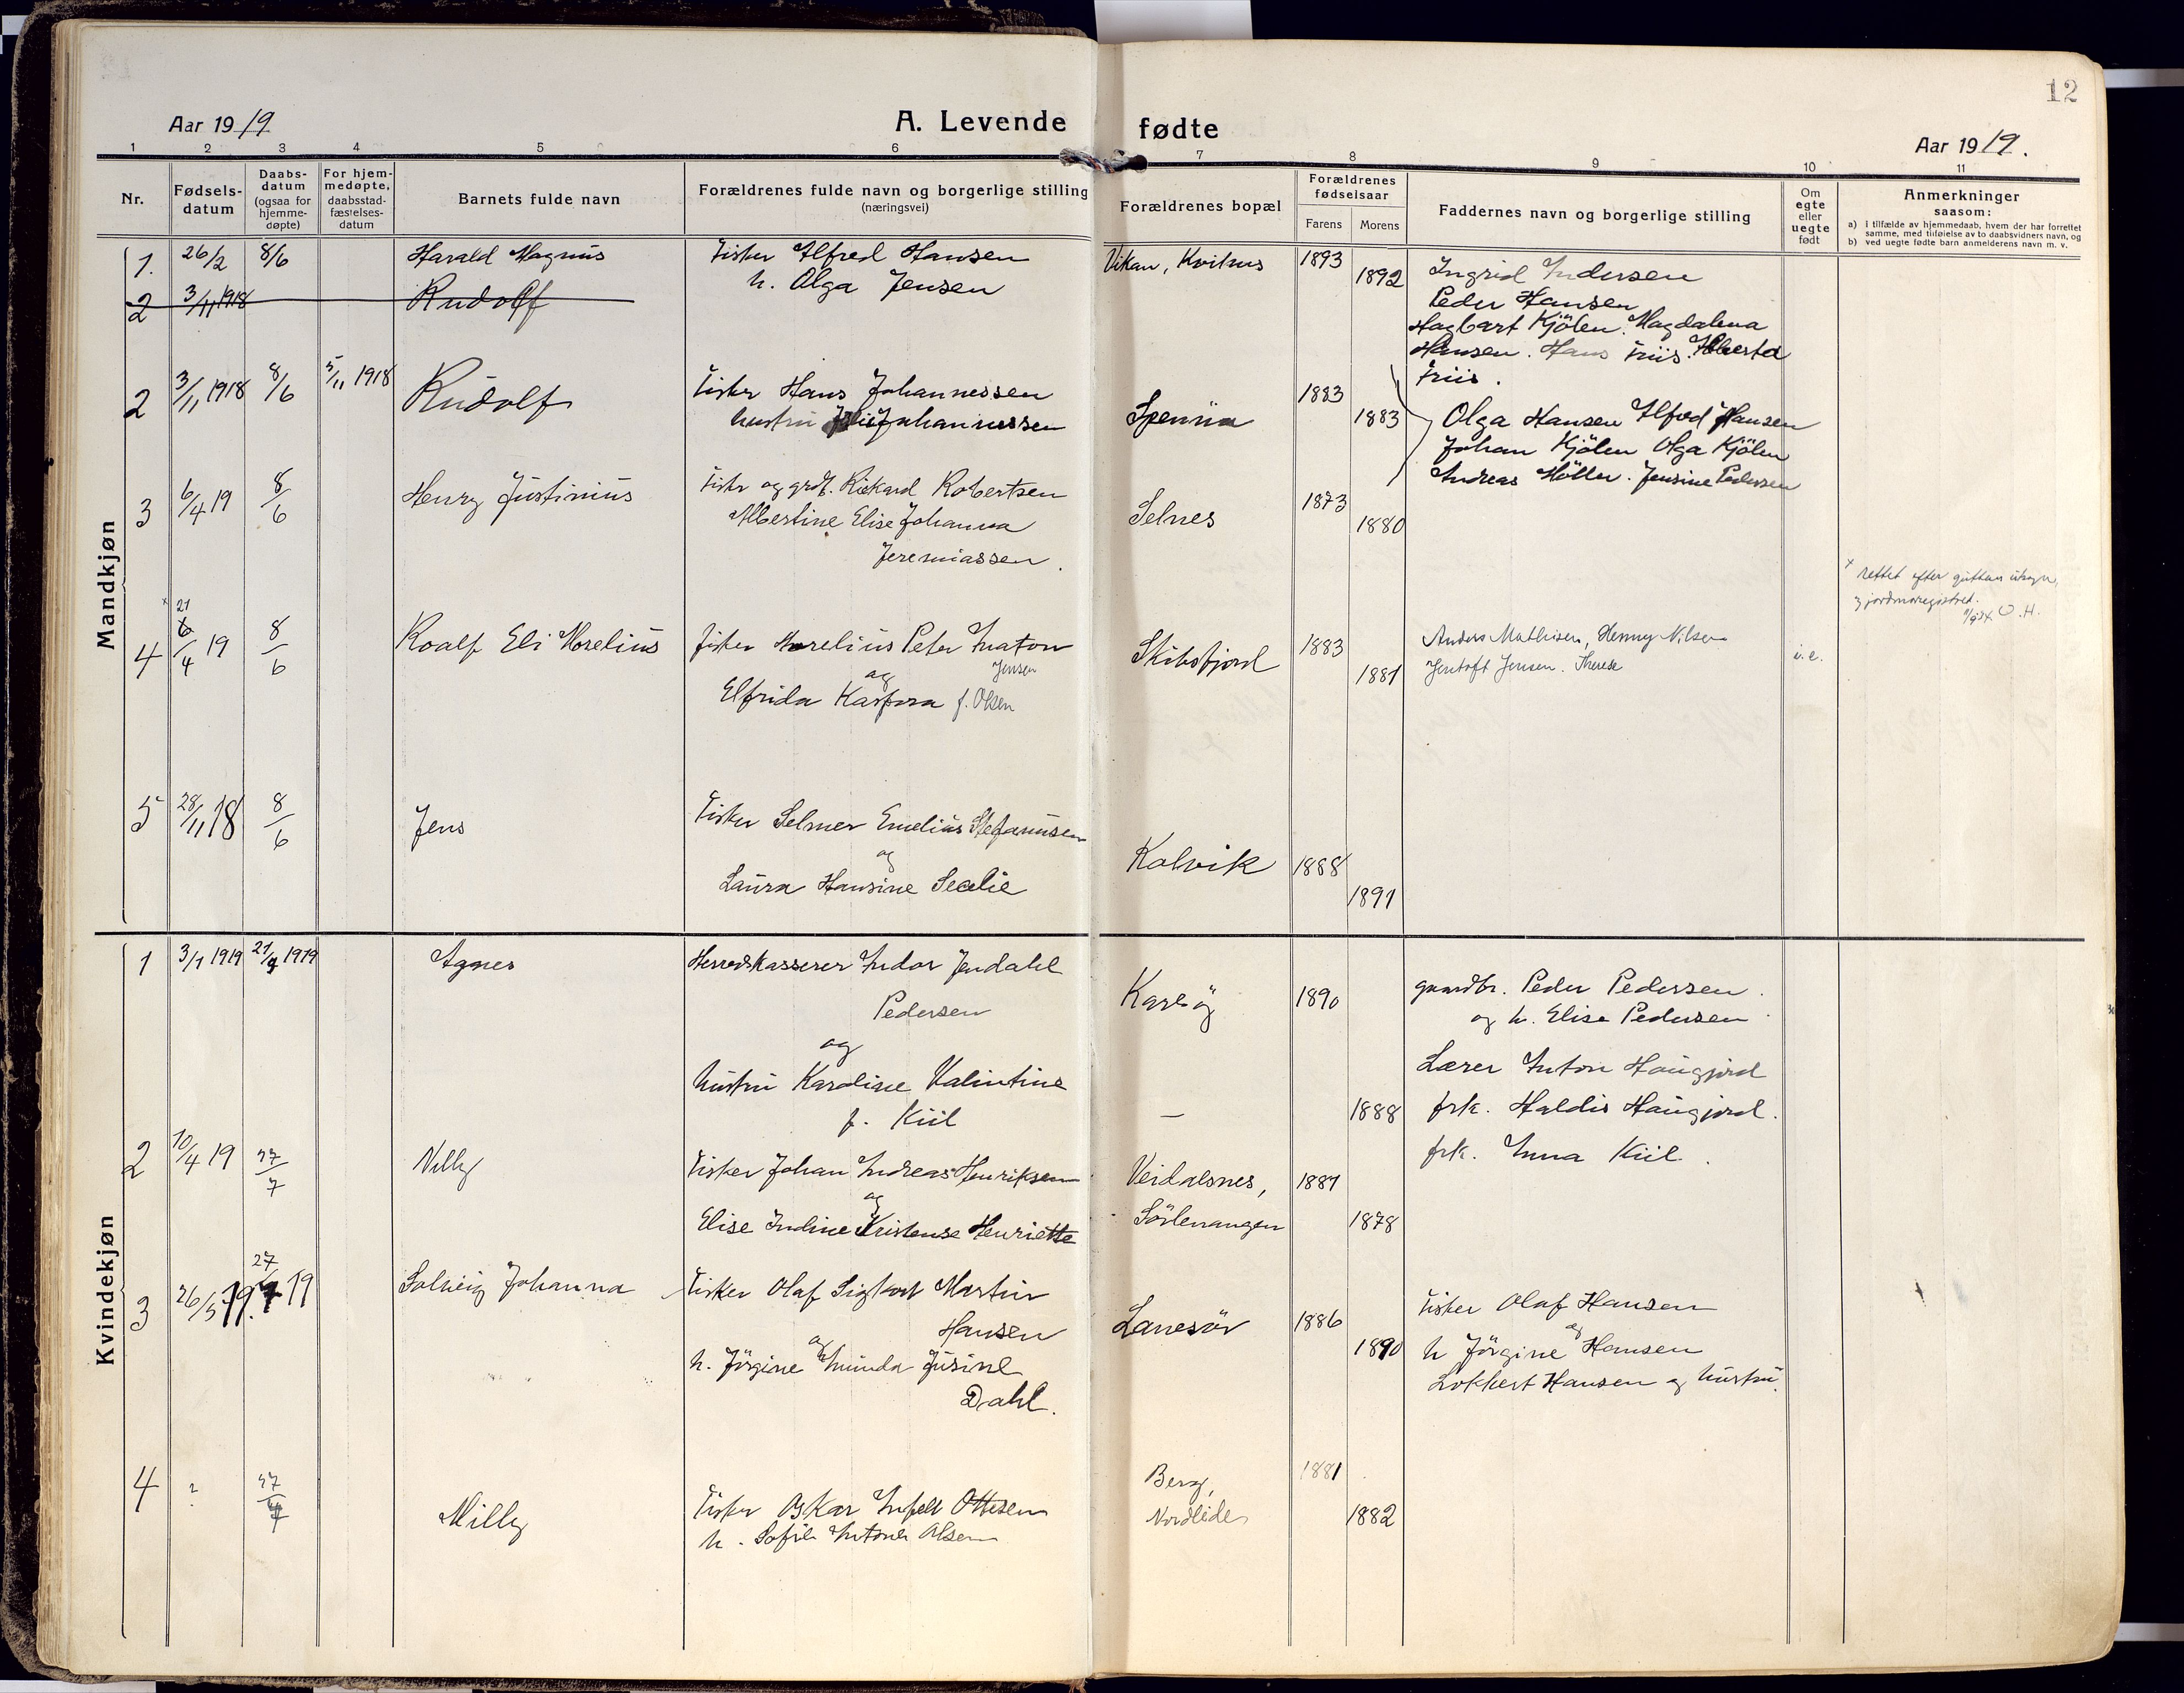 12
Aar 1919
A. Levende fødte
Aar 1919.
1 2 3 4 5 6 7 8 9 10 11
Nr.
Fødsels-
datum
Daabs-
datum
(ogsaa for
hjemme-
døpte)
For hjem-
medøpte,
daabsstad-
fæstelses-
datum
Barnets fulde navn
Forældrenes fulde navn og borgerlige stilling
(næringsvei)
Forældrenes bopæl
Forældrenes
fødselsaar
Farens Morens
Faddernes navn og borgerlige stilling
Om
egte
eller
uegte
født
Anmerkninger
saasom:
a) i tilfælde av hjemmedaab, hvem der har forrettet
samme, med tilføielse av to daabsvidners navn, og
b) ved uegte fødte barn anmelderens navn m. v.
Mandkjøn
1. 26/2 8/6 Harald Magnus
Fisker Alfred Hansen
h. Olga Jensen
Vikan, Kvitnes 1893
1892
Ingrid Andersen
Peder Hansen
Hagbart Kjölen. Magdalena
Hansen. Hans Friis.
Friis.
2 3/11 1918 Rudolf
2 3/11 1918 8/6 5/11 1918 Rudolf
Fisker Hans Johannessen
hustru Johannessen
1883
1883
Olga Hansen Alfred Hansen
Johan Kjölen Olga Kjölen
Andreas Möller. Jensine Pedersen
3 6/4 19 8/6 Henry Justinius
Fisker og grdf. Rickard Robertsen
Albertine Elise Johanna
Jeremiassen.
Selnes 1873
1880
4 x 21 6/4 19 8/6 Roalf Eli Morelius
fisker Morelius Peter Anton
Jensen
og
Elfrida Kaspara f. Olsen
Skibsfjord 1883
1881
Anders Mathisen, Henny Nilsen
Jentoft Jensen. Therese
x rettet efter
jordmorregistret.
O.H.
5 28/11 18 8/6 Jens
Fisker Selmer Emelius Stefanusen
og
Laura Hansine Secelie
Kalvik 1888
1891
Kvindekjøn
1 3/1 1919 1919 Agnes
Herredskasserer Andor Jendahl
Pedersen
og
hustru Karoline Valintine
f. Kiil
Karlsö 1890
— 1888
gaardbr. Peder Pedersen
og h. Elise Pedersen
Lærer Anton Haugjord
frk. Haldis Haugjord.
frk. Anna Kiil.
2 10/4 19 27/7 Nelly
Fisker Johan Andreas Henriksen
og
Elise Indine Kristense Henriette
Veidalsnes, 1881
Sörlenangen 1878
3 26/5 19. 27/7 19 Solveig Johanna
Fisker Olaf Sigkort Martin
Hansen
og
h. Jörgine Aminda Jusine
Dahl.
Lanesör 1886
1890
Fisker Olaf Hansen
og
h Jörgine Hansen
Lokkert Hansen og hustru.
4 ? 27/7 Milly
Fisker Oskar Ottesen
h. Sofie Antonie Olsen
Berg, 1881
1882